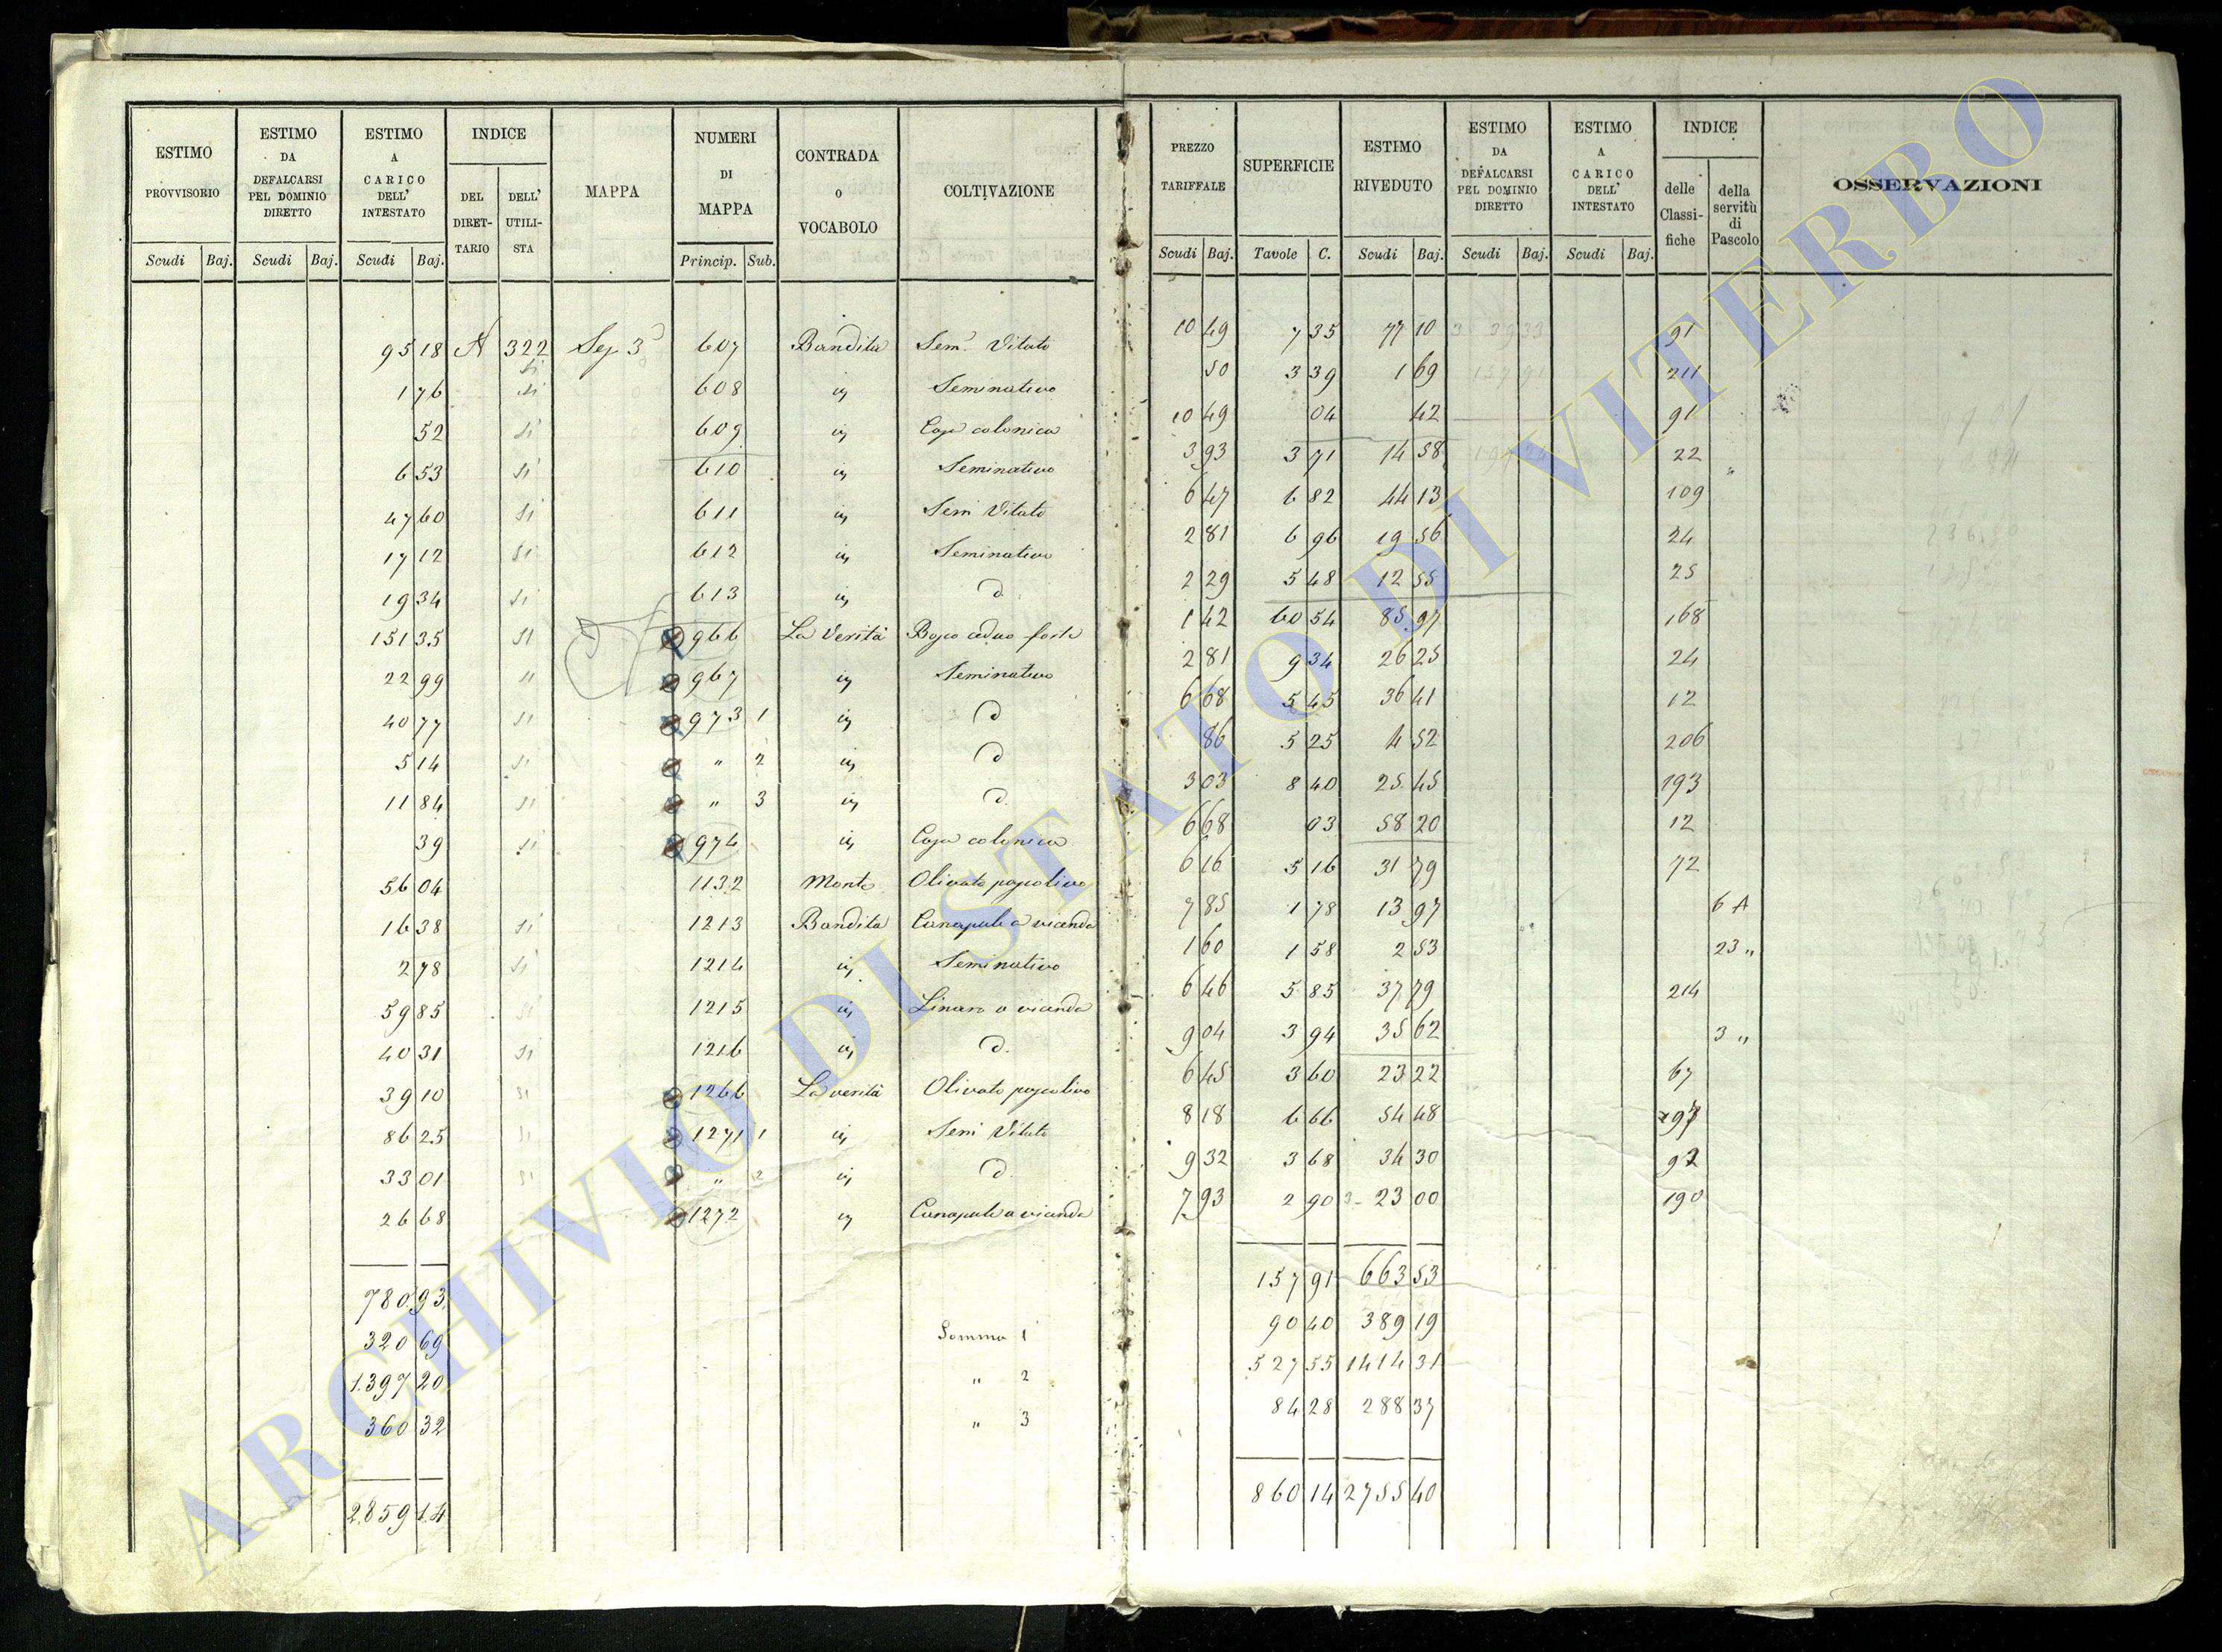 ESTIMO PROVVISORIO Scudi Baj. | ESTIMO DA DEFALCARSI PEL DOMINIO DIRETTO Scudi Baj. | ESTIMO A CARICO DELL' INTESTATO Scudi Baj. | INDICE DEL DIRETTARIO DELL' UTILISTA | MAPPA | NUMERI DI MAPPA Princip. Sub. | CONTRADA O VOCABOLO | COLTIVAZIONE | PREZZO TARIFFALE Scudi Baj. | SUPERFICIE Tavole C. | ESTIMO RIVEDUTO Scudi Baj. | ESTIMO DA DEFALCARSI PEL DOMINIO DIRETTO Scudi Baj. | ESTIMO A CARICO DELL' INTESTATO Scudi Baj. | INDICE delle Classifiche della servitù di Pascolo | OSSERVAZIONI
95 18 A 322 Sez 3ª 607 Bandita Sem.º Vitato 10 49 7 35 77 10 91
1 76 si 608 id Seminativo 50 3 39 1 69 211
52 si 609 id Casa colonica 10 49 04 42 91
6 53 si 610 id Seminativo 3 93 3 71 14 58 22 "
47 60 si 611 id Sem Vitato 6 47 6 82 44 13 109
17 12 si 612 id Seminativo 2 81 6 96 19 56 24
19 34 si 613 id d. 2 29 5 48 12 55 25
151 35 si 966 La Verità Bosco ceduo forte 1 42 60 54 85 97 168
22 99 " 967 id Seminativo 2 81 9 34 26 25 24
40 77 si 973 1 id d 6 68 5 45 36 41 12
5 14 si " 2 id d 86 5 25 4 52 206
11 84 si " 3 id d. 3 03 8 40 25 45 193
39 si 974 id Casa colonica 6 68 03 58 20 12
56 04 1132 Monte Olivato pascolivo 6 16 5 16 31 79 72
16 38 si 1213 Bandita Canapule a vicenda 7 85 1 78 13 97 6 A
2 78 si 1214 id Seminativo 1 60 1 58 2 53 23 "
59 85 si 1215 id Linaro a vicenda 6 46 5 85 37 79 214
40 31 si 1216 id d. 9 04 3 94 35 62 3 "
39 10 si 1266 La verità Olivato pascolivo 6 45 3 60 23 22 67
86 25 si 1271 1 id Sem Vitato 8 18 6 66 54 48 197
33 01 si " 2 id d. 9 32 3 68 34 30 92
26 68 1272 id Canapule a vicenda 7 93 2 90 23 00 190
780 93 157 91 663 53
320 69 Somma 1 90 40 389 19
1.397 20 " 2 527 55 1414 31
360 32 " 3 84 28 288 37
2.859 14 860 14 2755 40
ARCHIVIO DI STATO DI VITERBO